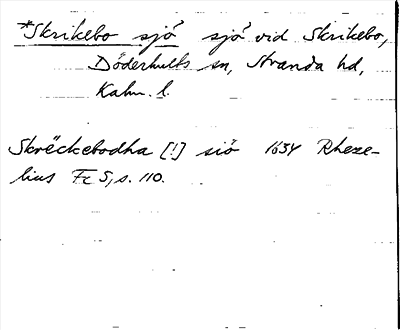 *Skrikebo sjö sjö vid Skrikebo,
Döderhults sn, Stranda hd,
Kalm. l.
Skrëckebodha [!] siö 1634 Rheze-
lius Fc 5, s. 110.